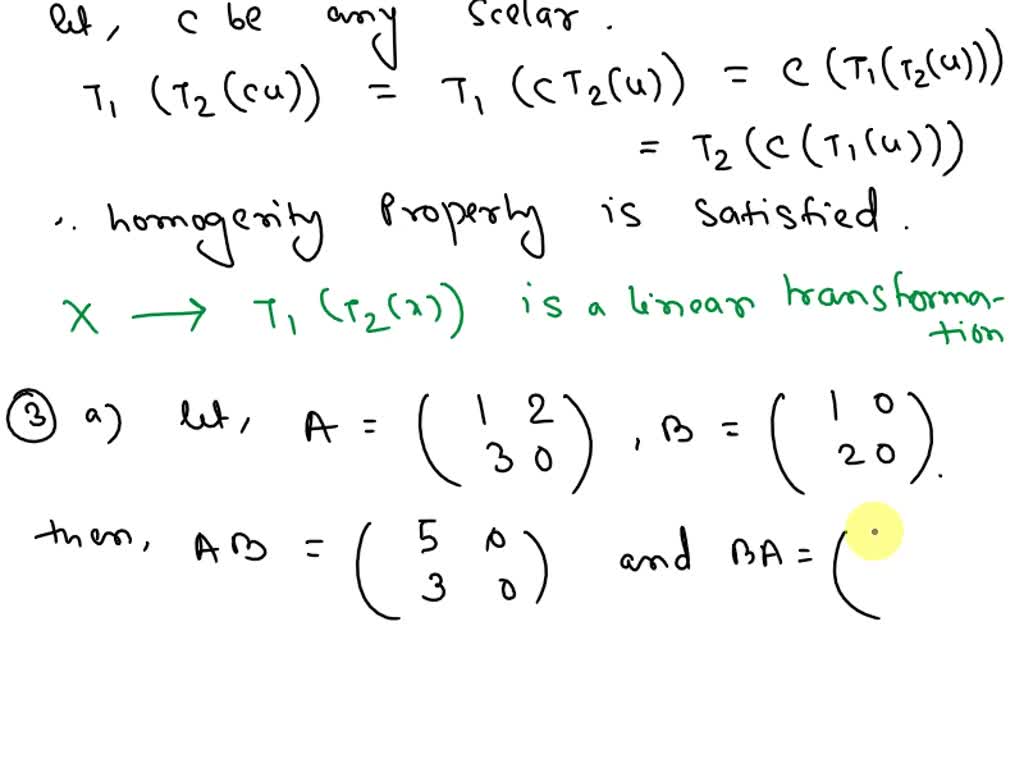 let, c be any scelar.
T₁ (T₂(cu)) = T₁ (cT₂(u)) = c(T₁(T₂(u)))
= T₂(c(T₁(u)))
∴ homogerity Property is satisfied.
X → T₁ (T₂(x)) is a linear transforma-
tion
③ a) let, A = ( 1 2 ) , B = ( 1 0 ).
3 0 2 0
then, AB = ( 5 0 ) and BA = (
3 0